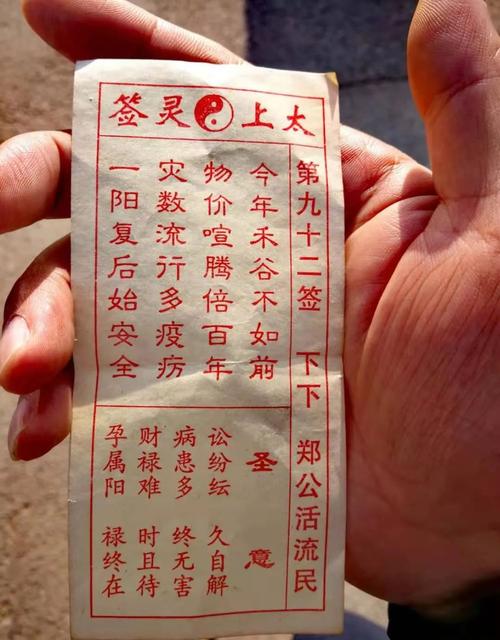 太上灵签
第九十二签 下下 郑公活流民
今年禾谷不如前
物价喧腾倍百年
灾数流行多疫疠
一阳复后始安全
圣意
讼纷纭 久自解
病患多 终无害
财禄难 时且待
孕属阳 禄终在